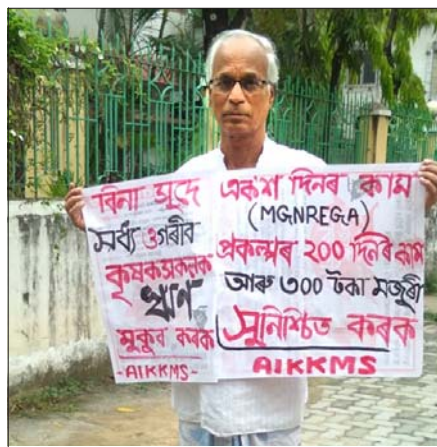 বিনা সুদে
মধ্য ও গৰীব
কৃষকসকলক
ঋণ
মুকুব কৰক
-AIKKMS-
একশ দিনৰ কাম
(MGNREGA)
প্ৰকল্পৰ ২০০ দিনৰ কাম
আৰু ৩০০ টকা মজুৰী
সুনিশ্চিত কৰক
AIKKMS